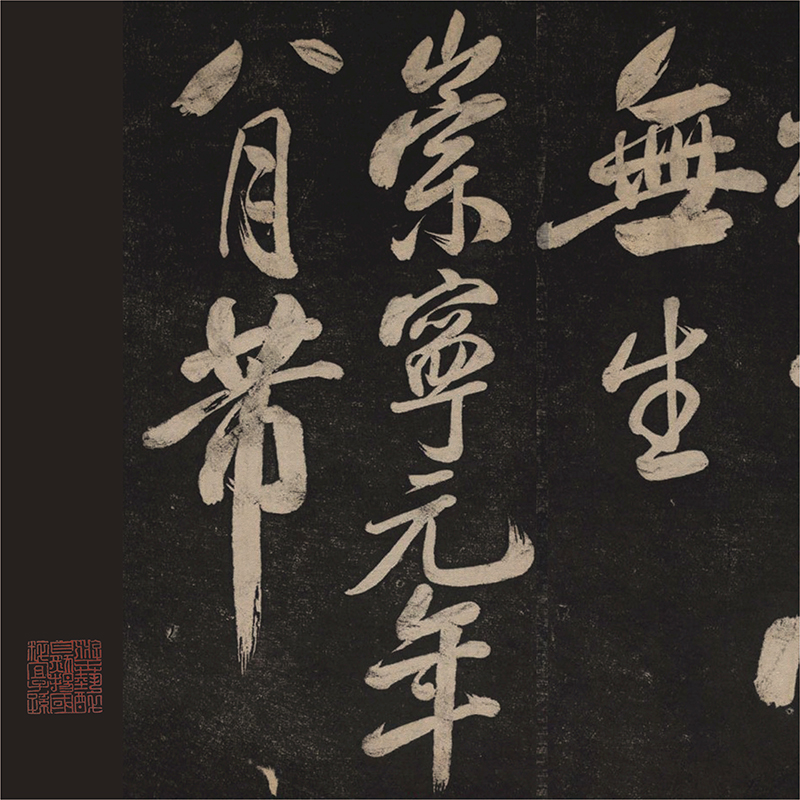 無生
崇寧元年
八月芾